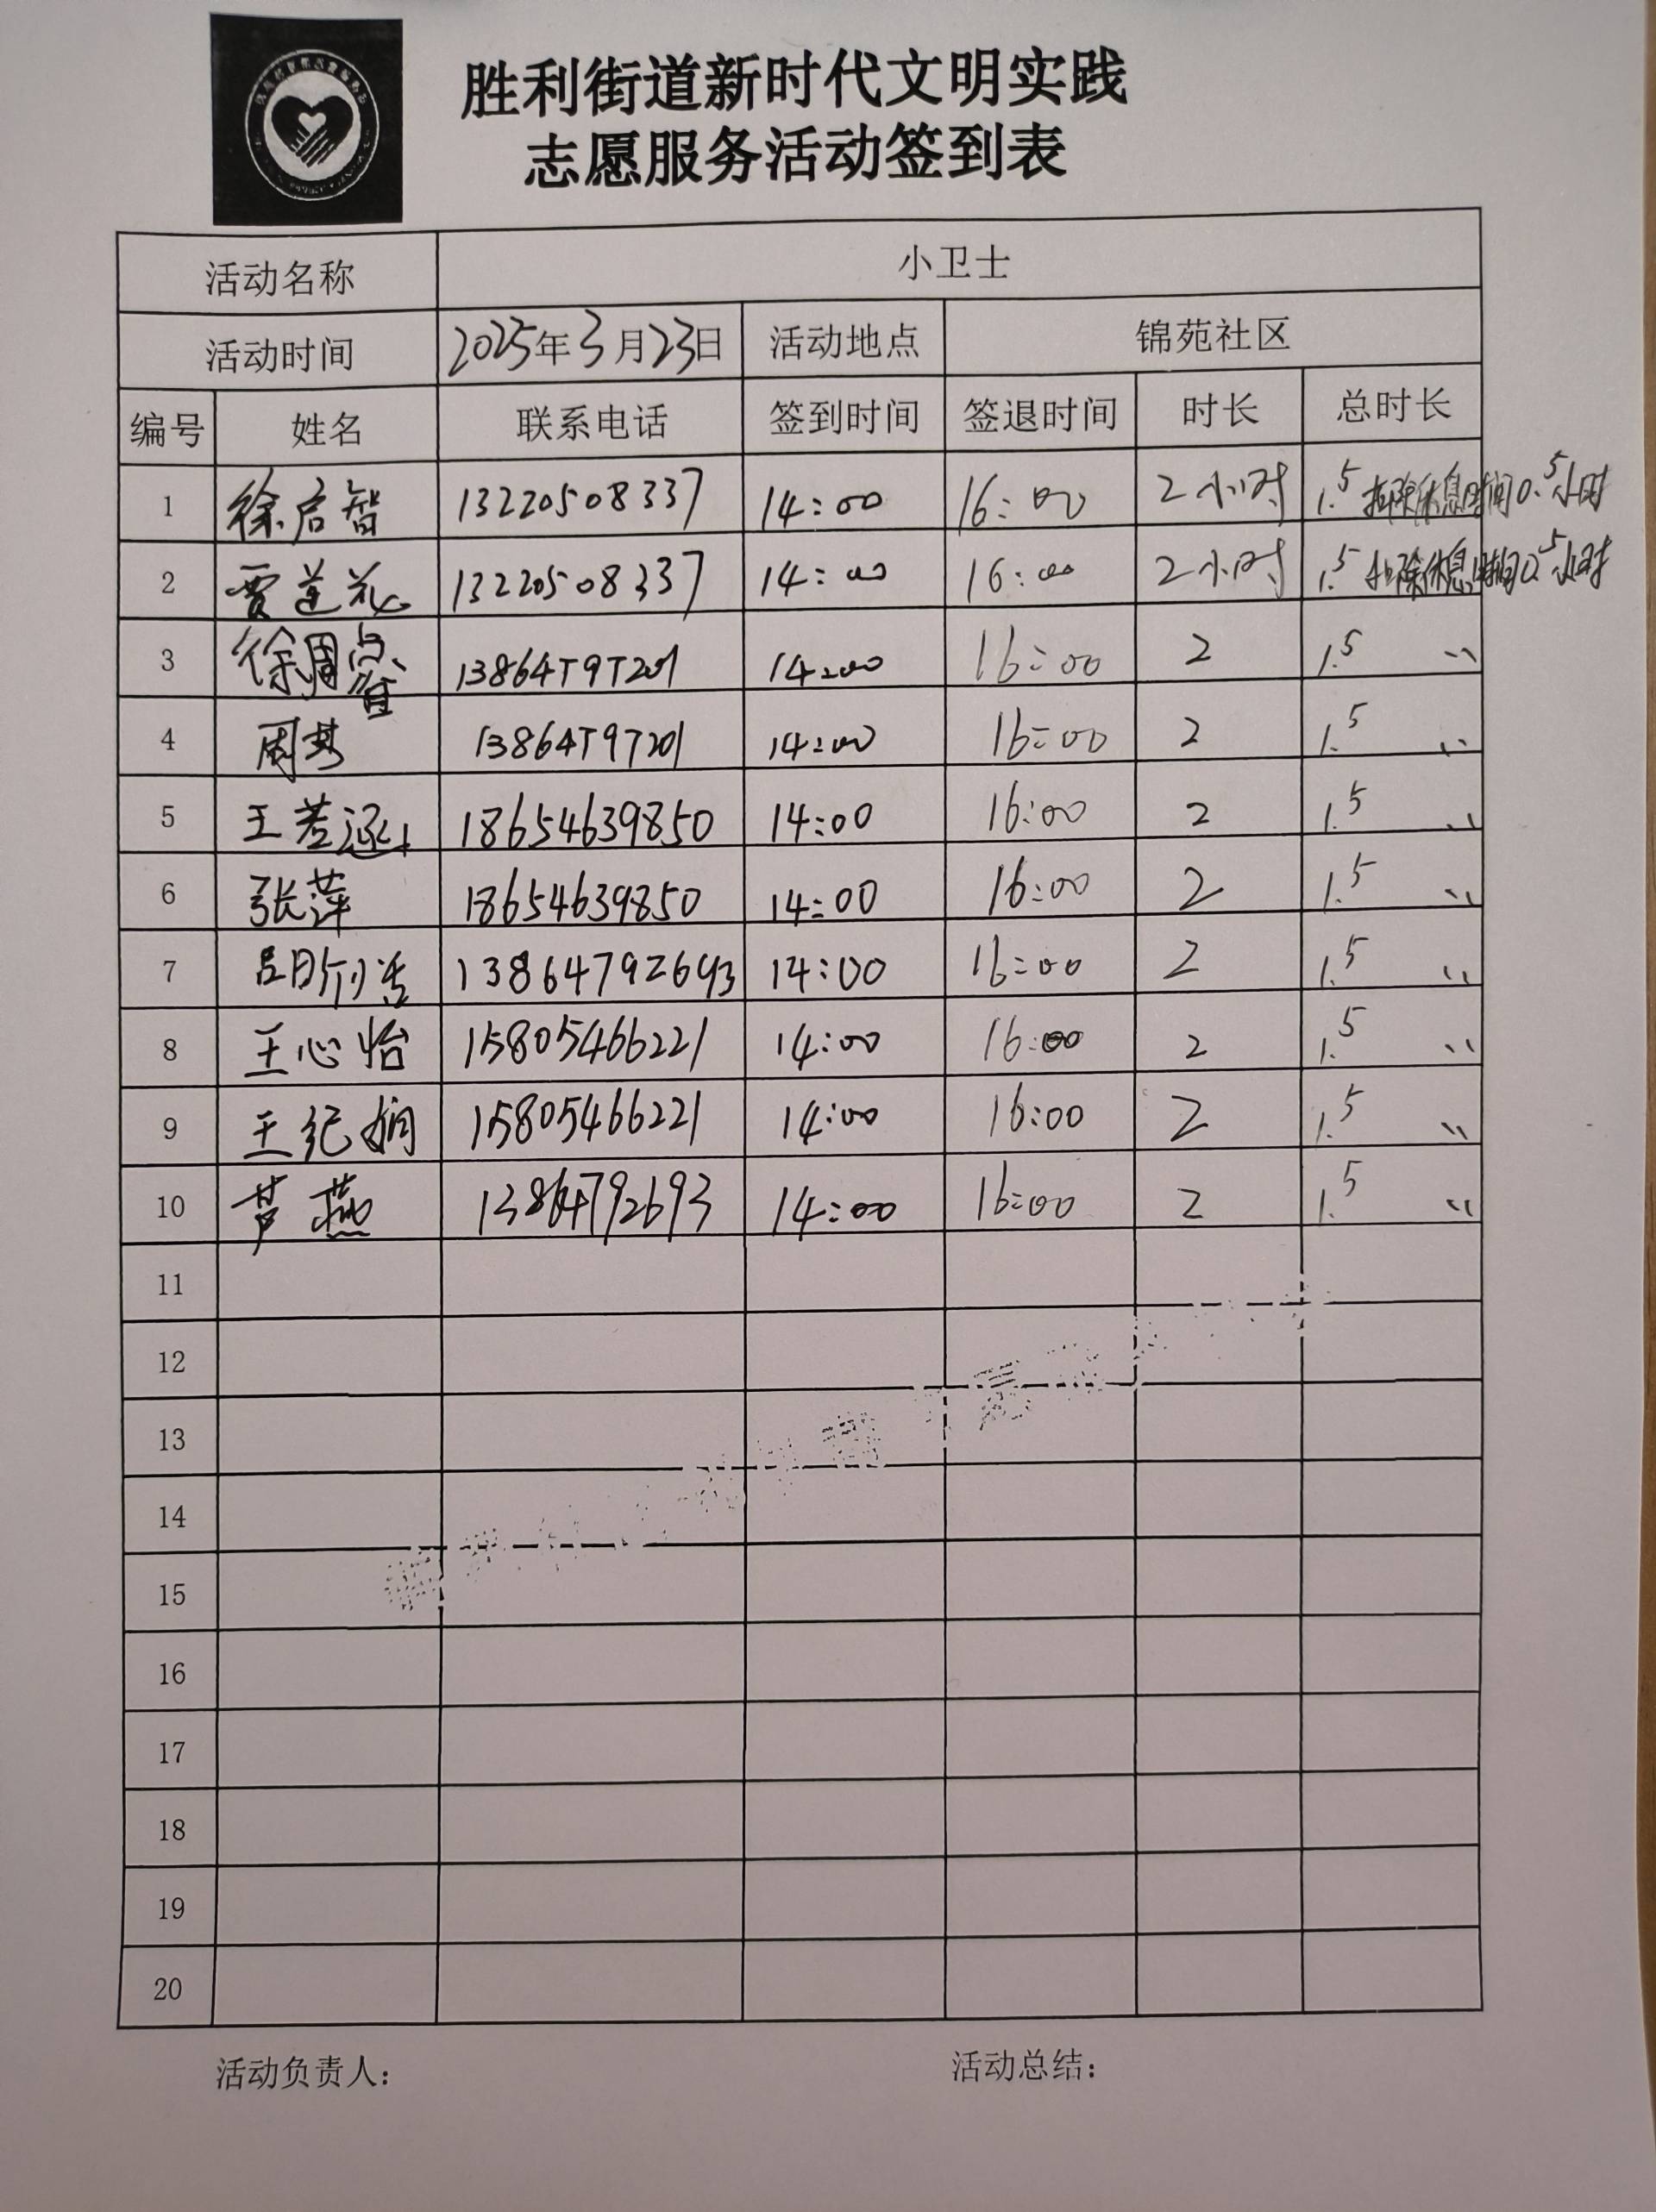 胜利街道新时代文明实践
志愿服务活动签到表
活动名称 小卫士
活动时间 2025年3月23日 活动地点 锦苑社区
编号 姓名 联系电话 签到时间 签退时间 时长 总时长
1 徐启智 13220508337 14:00 16:00 2小时 1.5 扣除休息时间0.5小时
2 贾莲花 13220508337 14:00 16:00 2小时 1.5 扣除休息时间0.5小时
3 徐周睿 13864797201 14:00 16:00 2 1.5 〃
4 周梦 13864797201 14:00 16:00 2 1.5 〃
5 王若涵 18654639850 14:00 16:00 2 1.5 〃
6 张萍 18654639850 14:00 16:00 2 1.5 〃
7 13864792693 14:00 16:00 2 1.5 〃
8 王心怡 15805466221 14:00 16:00 2 1.5 〃
9 王纪娴 15805466221 14:00 16:00 2 1.5 〃
10 芦燕 13864792693 14:00 16:00 2 1.5 〃
11
12
13
14
15
16
17
18
19
20
活动负责人： 活动总结：